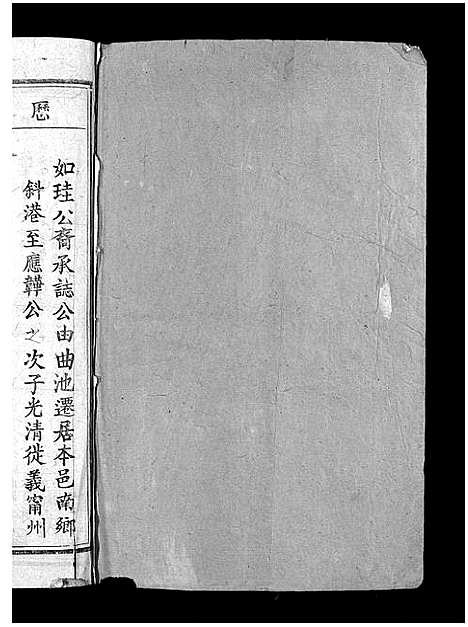 如珪公裔承誌公由曲池遷居本邑南鄉
斜港至應韡公之次子光清徙義甯州
歷